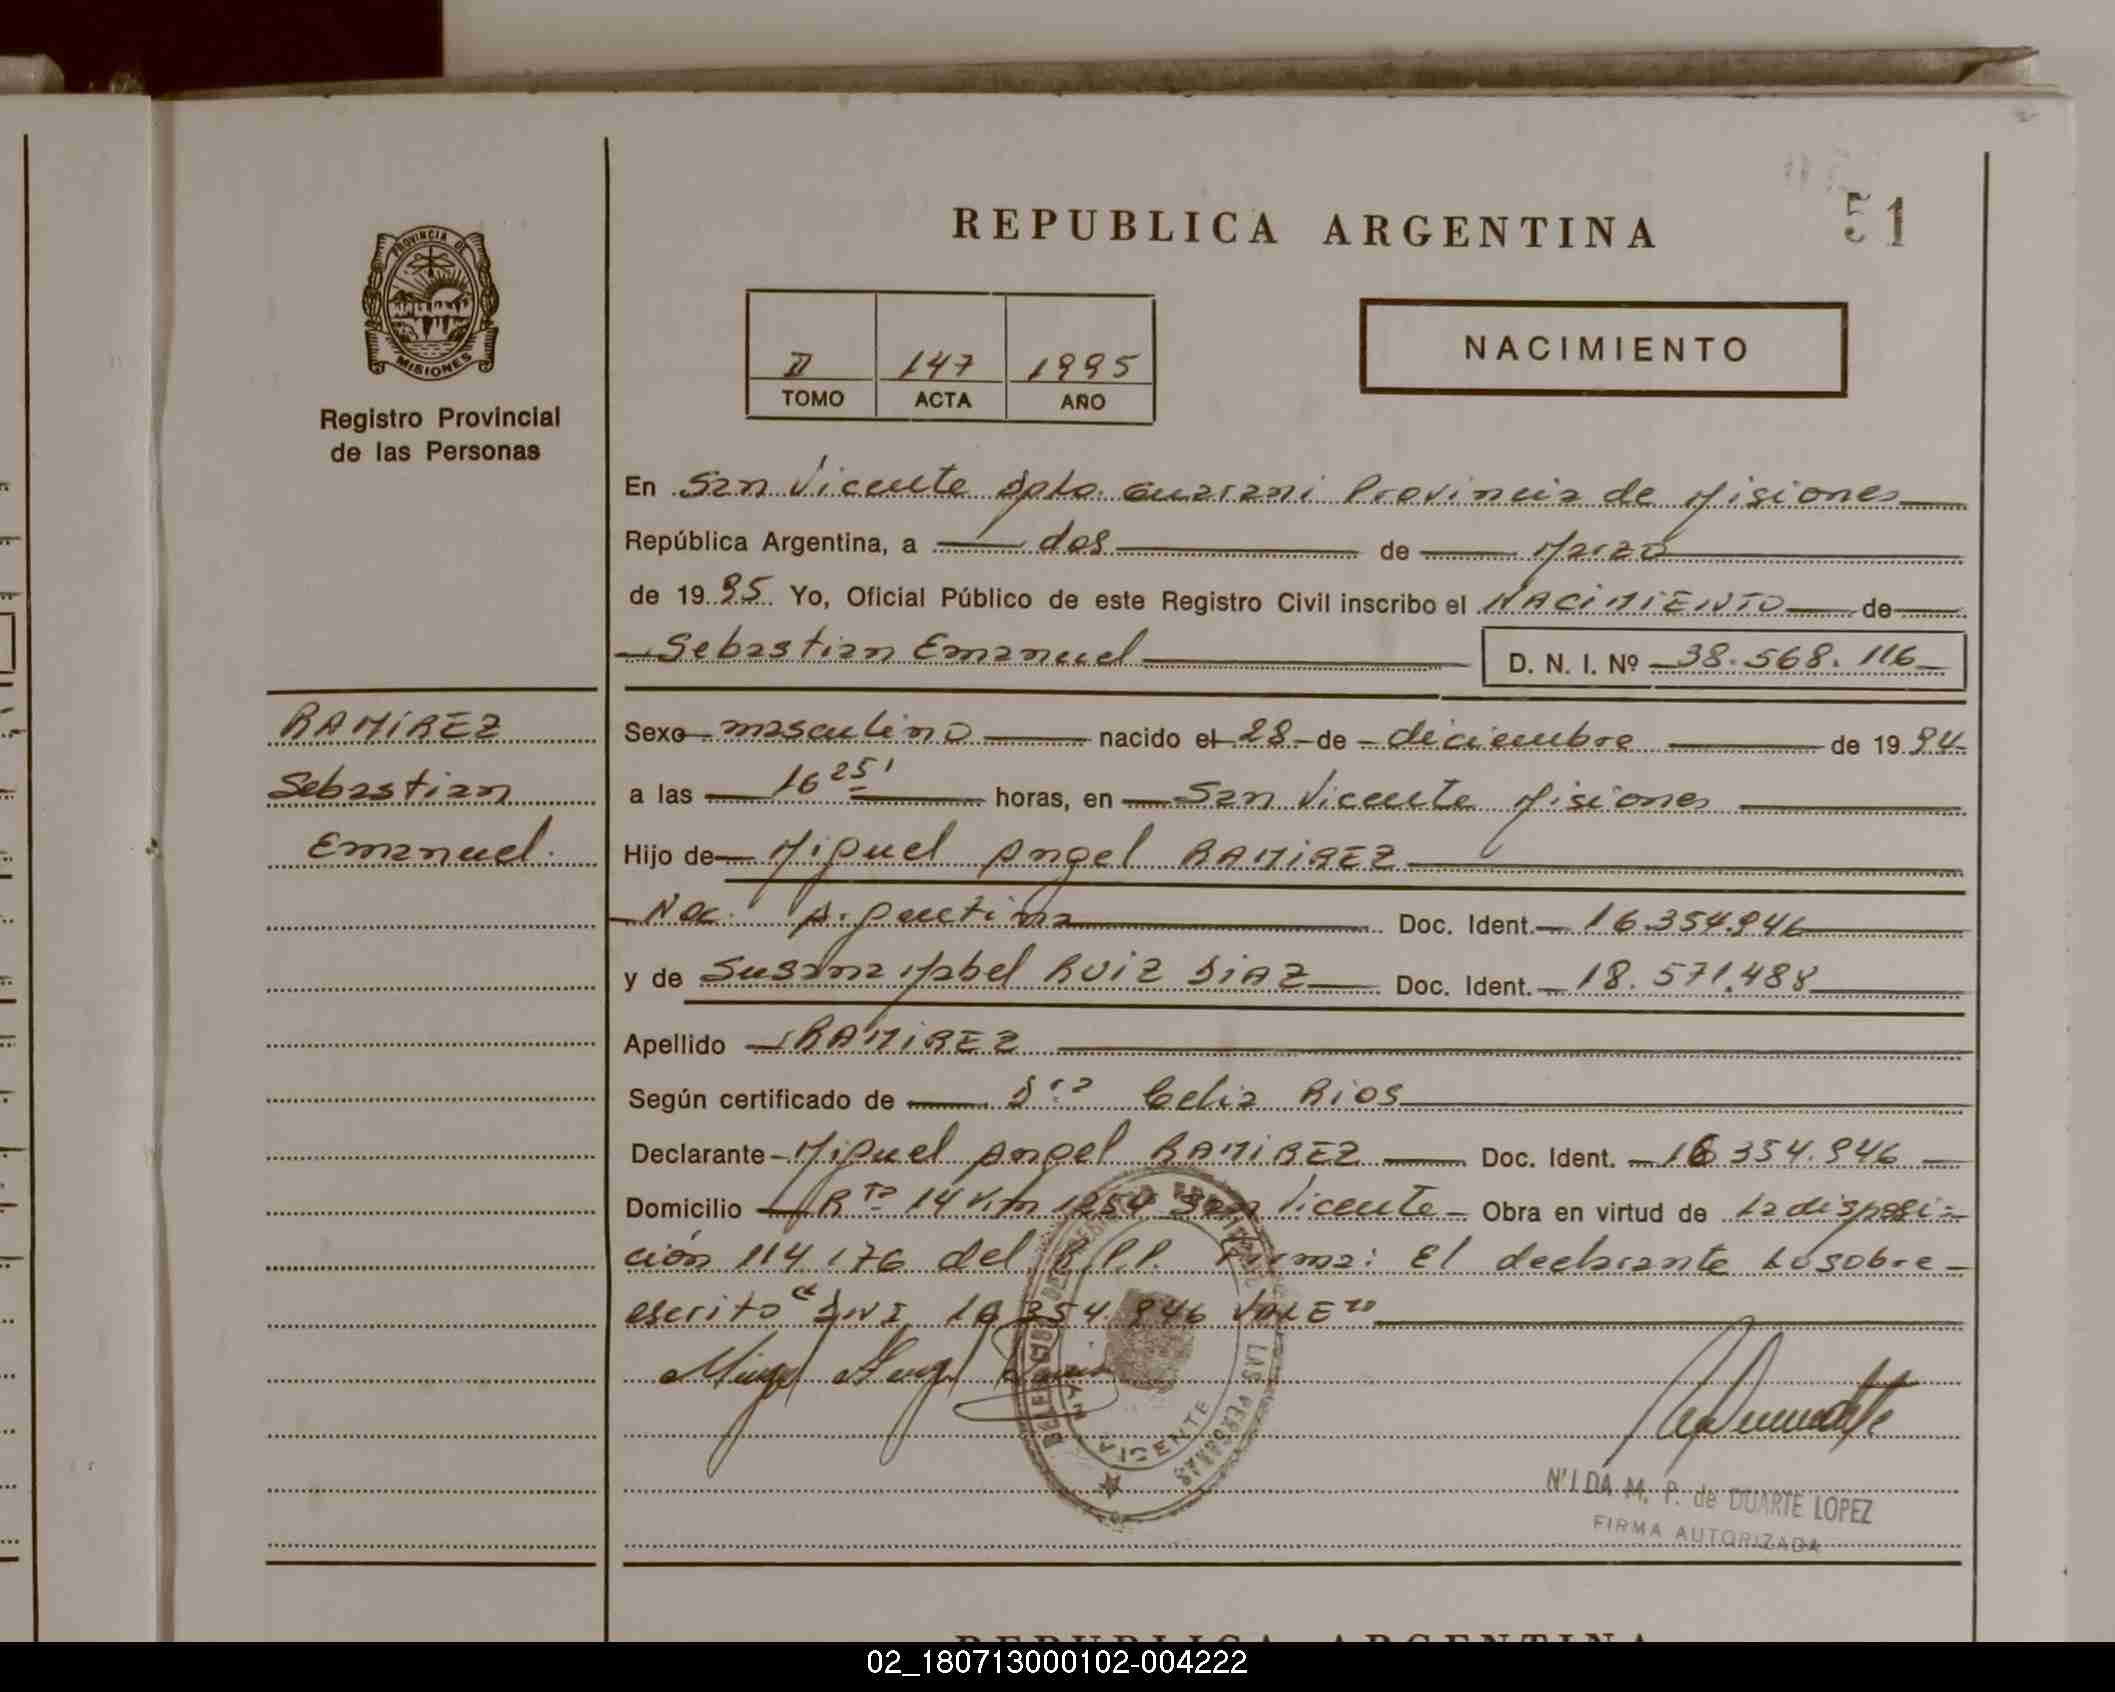 51
REPUBLICA ARGENTINA
PROVINCIA DE
MISIONES
Registro Provincial
de las Personas
II 147 1995
TOMO ACTA AÑO
NACIMIENTO
En San Vicente Dpto. Guarani Provincia de Misiones
República Argentina, a dos de Marzo
de 1995 Yo, Oficial Público de este Registro Civil inscribo el NACIMIENTO de
Sebastian Emanuel D. N. I. Nº 38.568.116
RAMIREZ
Sebastian
Emanuel.
Sexo masculino nacido el 28 de diciembre de 1994
a las 16 25' horas, en San Vicente Misiones
Hijo de Miguel Angel RAMIREZ
Nac. Argentina Doc. Ident. 16.354.946
y de Susana Mabel RUIZ DIAZ Doc. Ident. 18.571.488
Apellido RAMIREZ
Según certificado de Dra Celia Rios
Declarante Miguel Angel RAMIREZ Doc. Ident. 16 354.946
Domicilio Rta 14 Km 1254 San Vicente Obra en virtud de la disposi-
ción 114/76 del R.P.P. Firma: El declarante Lo sobre-
escrito "DNI 16 354.946 VALE"
VICENTE
LAS PERSONAS
NILDA M. P. de DUARTE LOPEZ
FIRMA AUTORIZADA
REPUBLICA ARGENTINA
02_180713000102-004222